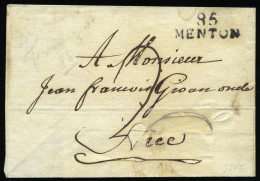 85
MENTON
A Monsieur
Jean francois
Nice